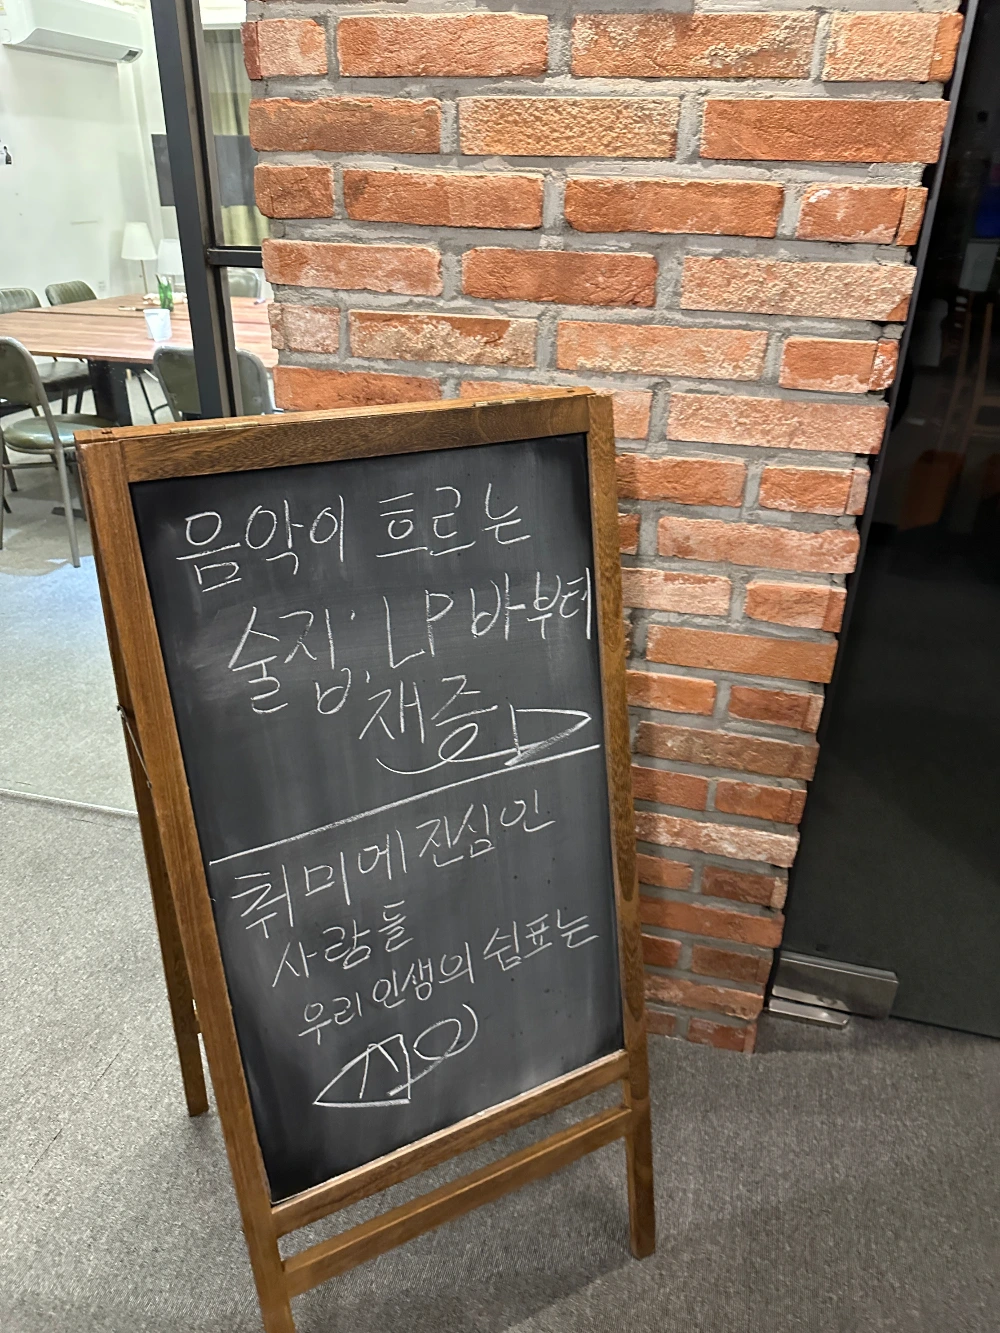 음악이 흐르는
술집; LP 바부터
재즈
취미에 진심인
사람들
우리 인생의 쉼표는